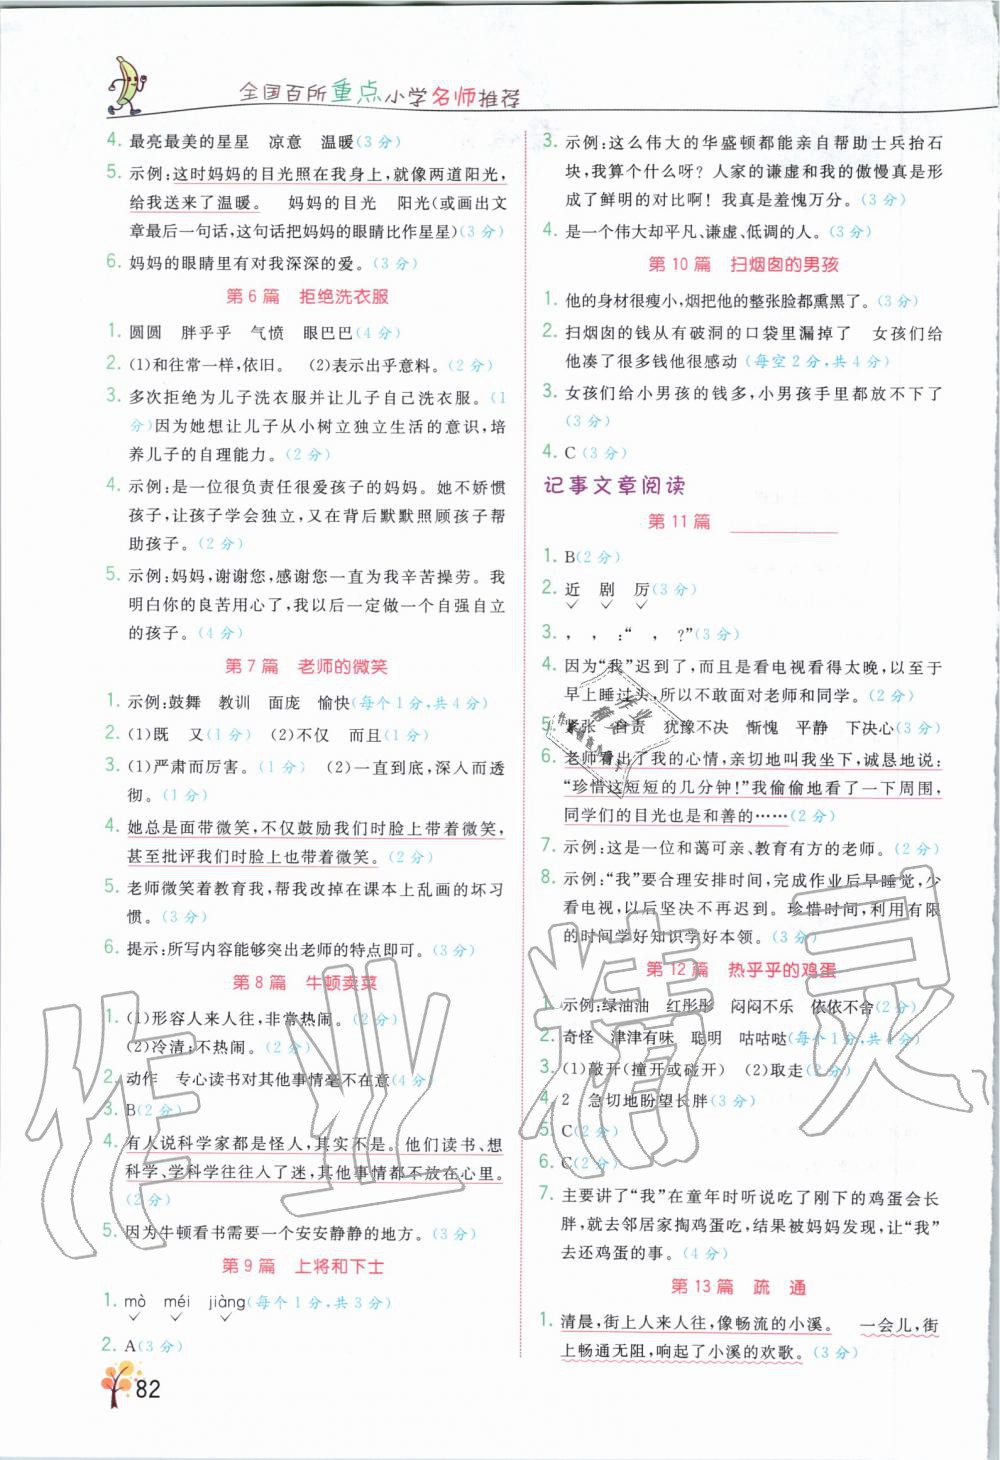 全国百所重点小学名师推荐
4. 最亮最美的星星　凉意　温暖(3分)
5. 示例:这时妈妈的目光照在我身上,就像两道阳光,
给我送来了温暖。　妈妈的目光　阳光(或画出文
章最后一句话,这句话把妈妈的眼睛比作星星)(3分)
6. 妈妈的眼睛里有对我深深的爱。(3分)
第6篇　拒绝洗衣服
1. 圆圆　胖乎乎　气愤　眼巴巴(4分)
2. (1)和往常一样,依旧。　(2)表示出乎意料。(2分)
3. 多次拒绝为儿子洗衣服并让儿子自己洗衣服。(1
分)因为她想让儿子从小树立独立生活的意识,培
养儿子的自理能力。(2分)
4. 示例:是一位很负责任很爱孩子的妈妈。她不娇惯
孩子,让孩子学会独立,又在背后默默照顾孩子,帮
助孩子。(2分)
5. 示例:妈妈,谢谢您,感谢您一直为我辛苦操劳。我
明白你的良苦用心了,我以后一定做一个自强自立
的孩子。(4分)
第7篇　老师的微笑
1. 示例:鼓舞　教训　面庞　愉快(每个1分,共4分)
2. (1)既　又(1分)　(2)不仅　而且(1分)
3. (1)严肃而厉害。(1分)　(2)一直到底,深入而透
彻。(1分)
4. 她总是面带微笑,不仅鼓励我们时脸上带着微笑,
甚至批评我们时脸上也带着微笑。(2分)
5. 老师微笑着教育我,帮我改掉在课本上乱画的坏习
惯。(3分)
6. 提示:所写内容能够突出老师的特点即可。(3分)
第8篇　牛顿卖菜
1. (1)形容人来人往,非常热闹。(2分)
(2)冷清;不热闹。(2分)
2. 动作　专心读书对其他事情毫不在意(4分)
3. B(2分)
4. 有人说科学家都是怪人,其实不是。他们读书、想
科学、学科学往往入了迷,其他事情都不放在心里。
(2分)
5. 因为牛顿看书需要一个安安静静的地方。(3分)
第9篇　上将和下士
1. mò　méi　jiàng(每个1分,共3分)
2. A(3分)
82
3. 示例:这么伟大的华盛顿都能亲自帮助士兵抬石
块,我算个什么呀?人家的谦虚和我的傲慢真是形
成了鲜明的对比啊!我真是羞愧万分。(3分)
4. 是一个伟大却平凡、谦虚、低调的人。(3分)
第10篇　扫烟囱的男孩
1. 他的身材很瘦小,烟把他的整张脸都熏黑了。(3分)
2. 扫烟囱的钱从有破洞的口袋里漏掉了　女孩们给
他凑了很多钱他很感动(每空2分,共4分)
3. 女孩们给小男孩的钱多,小男孩手里都放不下了
(3分)
4. C(3分)
记事文章阅读
第11篇
1. B(2分)
2. 近　剧　厉(3分)
3. ,　,　:“　,　?”(3分)
4. 因为“我”迟到了,而且是看电视看得太晚,以至于
早上睡过头,所以不敢面对老师和同学。(2分)
5. 紧张　自责　犹豫不决　惭愧　平静　下决心(3分)
6. 老师看出了我的心情,亲切地叫我坐下,诚恳地说:
“珍惜这短短的几分钟!”我偷偷地看了一下周围,
同学们的目光也是和善的……(2分)
7. 示例:这是一位和蔼可亲、教育有方的老师。
8. 示例:“我”要合理安排时间,完成作业后早睡觉,少
看电视,以后坚决不再迟到。珍惜时间,利用有限
的时间学好知识学好本领。(3分)
第12篇　热乎乎的鸡蛋
1. 示例:绿油油　红彤彤　闷闷不乐　依依不舍(2分)
2. 奇怪　津津有味　聪明　咕咕哒(每个1分,共4分)
3. (1)敲开(撞开或碰开)　(2)取走(2分)
4. 2　急切地盼望长胖(3分)
5. C(2分)
6. C(2分)
7. 主要讲了“我”在童年时听说吃了刚下的鸡蛋会长
胖,就去邻居家掏鸡蛋吃,结果被妈妈发现,让“我”
去还鸡蛋的事。(4分)
第13篇　疏　通
1. 清晨,街上人来人往,像畅流的小溪。　一会儿,街
上畅通无阻,响起了小溪的欢歌。(3分)
作业精灵